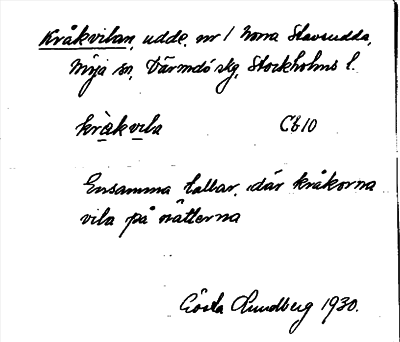 Kråkvilan, udde, nr 1 Norra Stavsudda,
Möja sn, Värmdö skg, Stockholms l.
kråkvila CE10
Ensamma tallar, där kråkorna
vila på nätterna
Gösta Lundberg 1930.